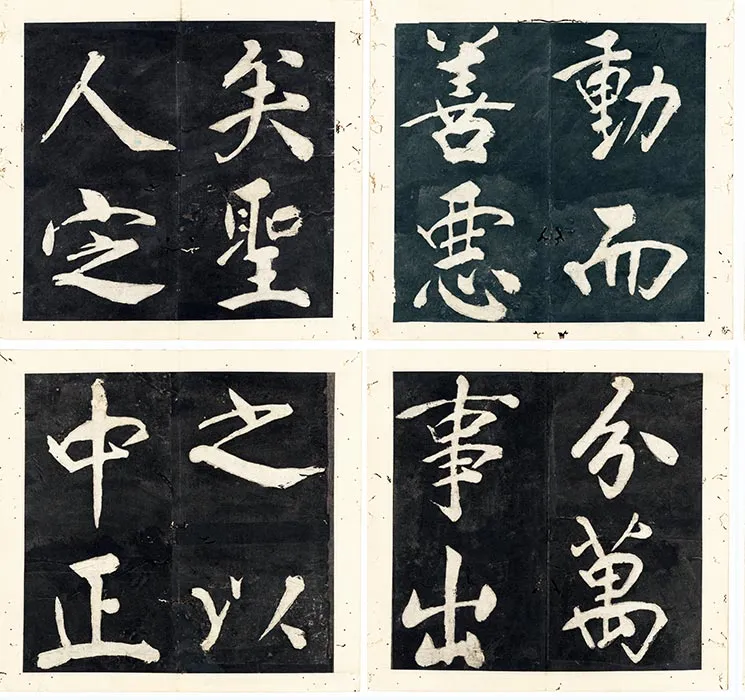 動而
善惡
分萬
事出
矣聖
人定
之以
中正